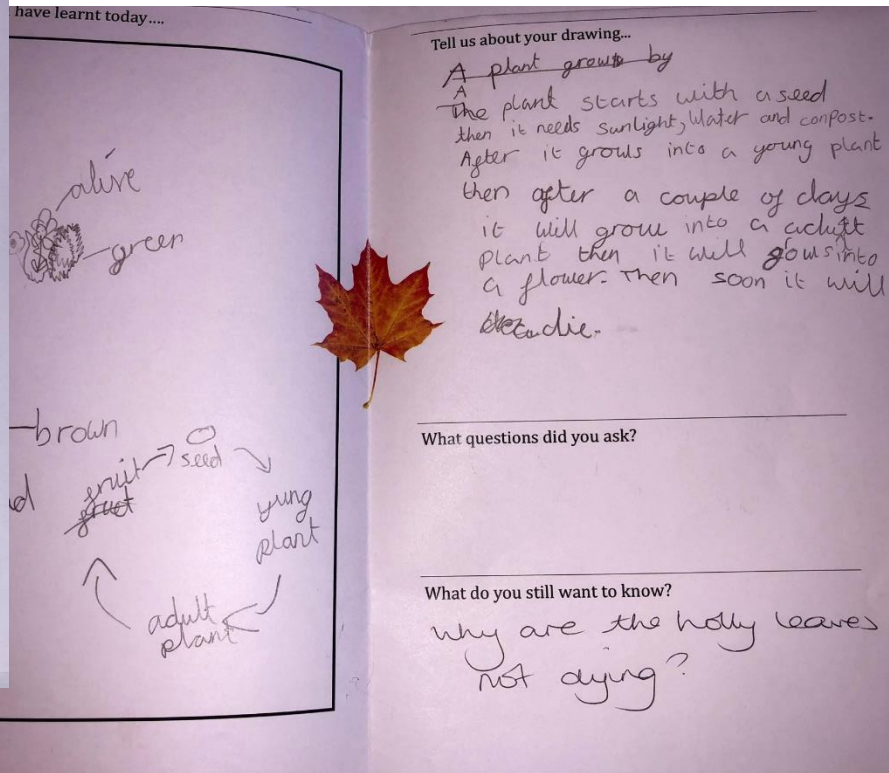 have learnt today....
alive
green
brown
d
seed
fruit
fruct
yung
plant
adult
plant
Tell us about your drawing...
A plant grows by
A
The plant starts with a seed
then it needs sunlight, Water and conpost.
After it grows into a young plant
then after a couple of days
it will grow into a adult
plant then it will gows into
a flower. Then soon it will
die.
What questions did you ask?
What do you still want to know?
Why are the holly leaves
not dying?